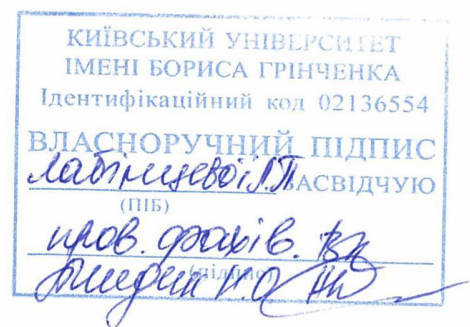 КИЇВСЬКИЙ УНІВЕРСИТЕТ
ІМЕНІ БОРИСА ГРІНЧЕНКА
Ідентифікаційний код 02136554
ВЛАСНОРУЧНИЙ ПІДПИС
Лабінцевої Л.П. ЗАСВІДЧУЮ
(ПІБ)
пров. фахів.
(підпис)